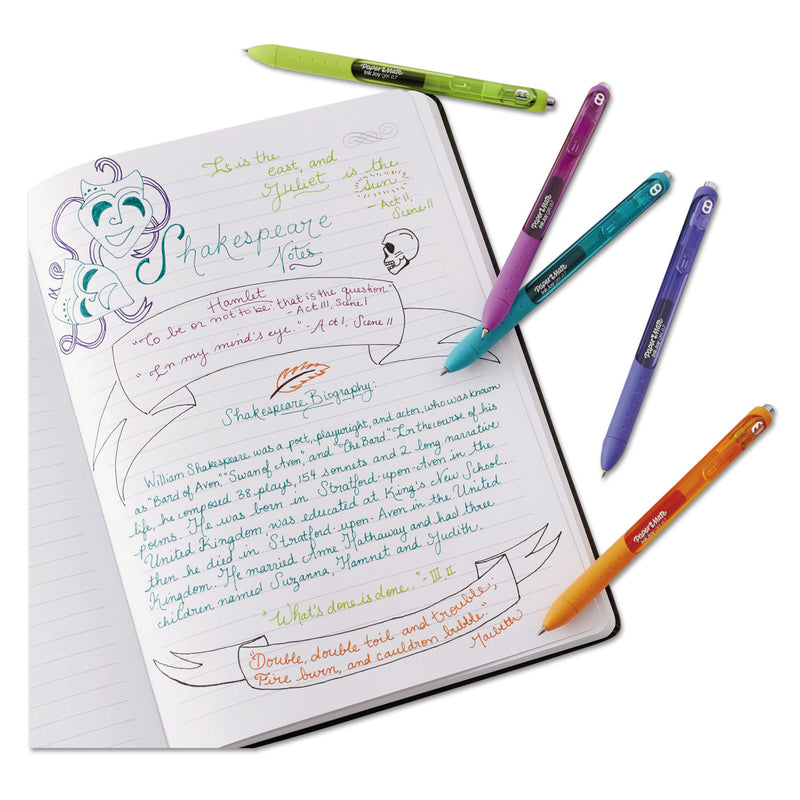 It is the
east, and
Juliet is the
Sun.
- Act II,
Scene II
Shakespeare
Notes
Hamlet
"To be or not to be: that is the question."
- Act III, Scene I
"In my mind's eye." - Act I, Scene II
Shakespeare Biography:
William Shakespeare was a poet, playwright, and actor, who was known
as "Bard of Avon," "Swan of Avon", and "The Bard." In the course of his
life, he composed 38 plays, 154 sonnets and 2 long narrative
poems. He was born in Stratford-upon-Avon in the
United Kingdom was educated at King's New School.
then he died in Stratford-upon-Avon in the United
Kingdom. He married Anne Hathaway and had three
children named Suzanna, Hamnet and Judith.
"What's done is done." - III. II
"Double, double toil and trouble;
Fire burn, and cauldron bubble."
Macbeth
Paper Mate
InkJoy gel 0.7
Paper Mate
InkJoy gel 0.7
Paper Mate
InkJoy gel 0.7
Paper Mate
InkJoy gel 0.7
Paper Mate
InkJoy gel 0.7